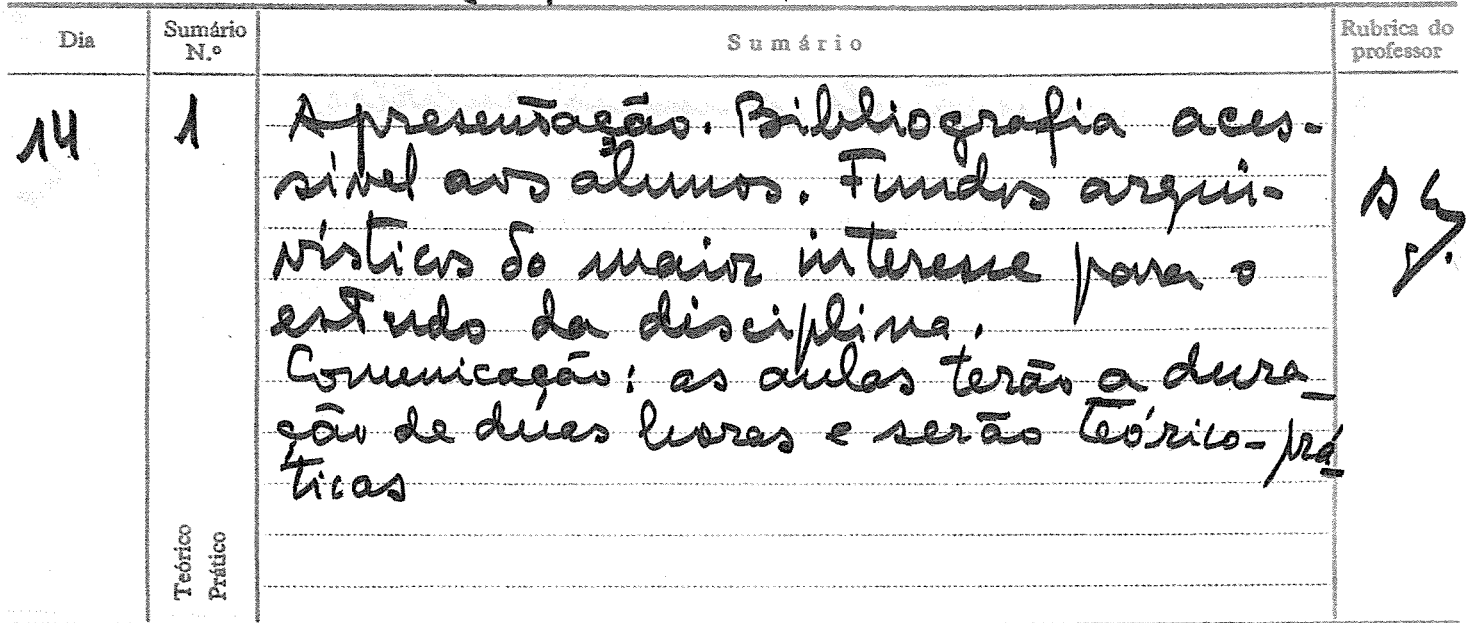 Dia
Sumário N.º
Sumário
Rubrica do professor
14
1
Apresentação. Bibliografia aces-
sível aos alunos. Fundos arqui-
vísticos do maior interesse para o
estudo da disciplina.
Comunicação: as aulas terão a dura_
ção de duas horas e serão teórico-prá_
ticas
Teórico
Prático